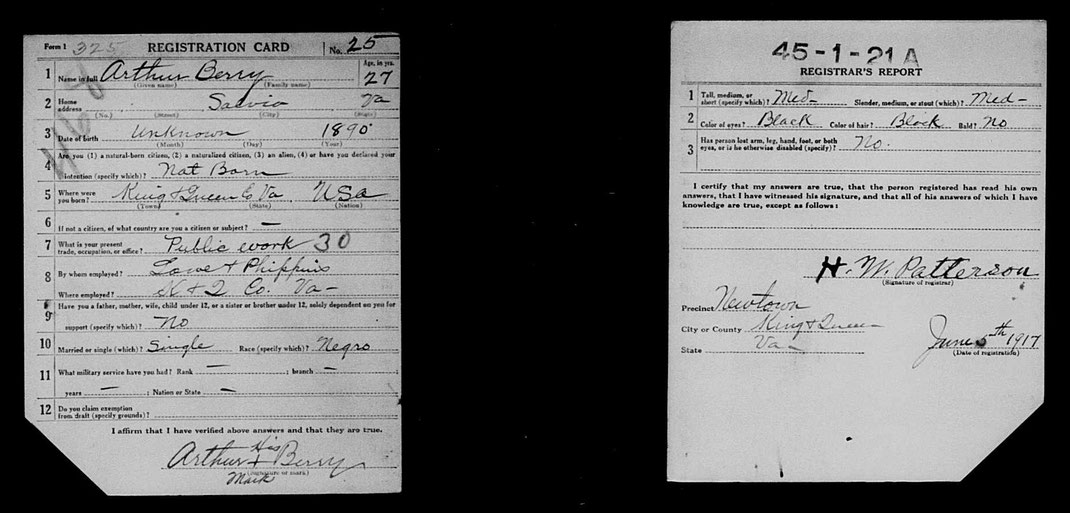 Form 1 325 REGISTRATION CARD No. 25
1 Name in full Arthur Berry Age, in yrs. 27
(Given name) (Family name)
2 Home address Salvia Va
(No.) (Street) (City) (State)
3 Date of birth Unknown 1890
(Month) (Day) (Year)
4 Are you (1) a natural-born citizen, (2) a naturalized citizen, (3) an alien, (4) or have you declared your
intention (specify which)? Nat Born
5 Where were you born? King & Queen Co Va USa
(Town) (State) (Nation)
6 If not a citizen, of what country are you a citizen or subject? —
7 What is your present trade, occupation, or office? Public work 30
8 By whom employed? Lowe & Phippins
Where employed? K & Q Co. Va-
9 Have you a father, mother, wife, child under 12, or a sister or brother under 12, solely dependent on you for
support (specify which)? No
10 Married or single (which)? Single Race (specify which)? Negro
11 What military service have you had? Rank — ; branch —
years — ; Nation or State —
12 Do you claim exemption from draft (specify grounds)?
I affirm that I have verified above answers and that they are true.
His
Arthur + Berry
(Signature or mark)
Mark
45-1-21 A
REGISTRAR'S REPORT
1 Tall, medium, or short (specify which)? Med- Slender, medium, or stout (which)? Med-
2 Color of eyes? Black Color of hair? Black Bald? No
3 Has person lost arm, leg, hand, foot, or both eyes, or is he otherwise disabled (specify)? No.
I certify that my answers are true, that the person registered has read his own
answers, that I have witnessed his signature, and that all of his answers of which I have
knowledge are true, except as follows:
H. W. Patterson
(Signature of registrar)
Precinct Newtown
City or County King & Queen
State Va- June 5th 1917
(Date of registration)